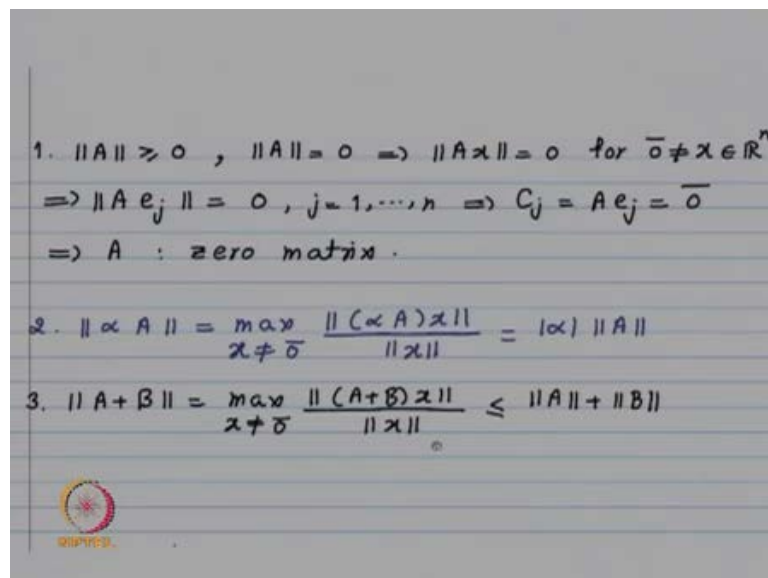 1. ||A|| ≥ 0 , ||A|| = 0 => ||Ax|| = 0 for 0̄ ≠ x ∈ ℝⁿ
=> ||A eⱼ || = 0 , j = 1, ..., n => Cⱼ = A eⱼ = 0̄
=> A : zero matrix .
2. || α A || = max_{x ≠ 0̄} || (α A) x || / || x || = |α| ||A||
3. || A + B || = max_{x ≠ 0̄} || (A+B) x || / || x || ≤ ||A|| + ||B||
NPTEL